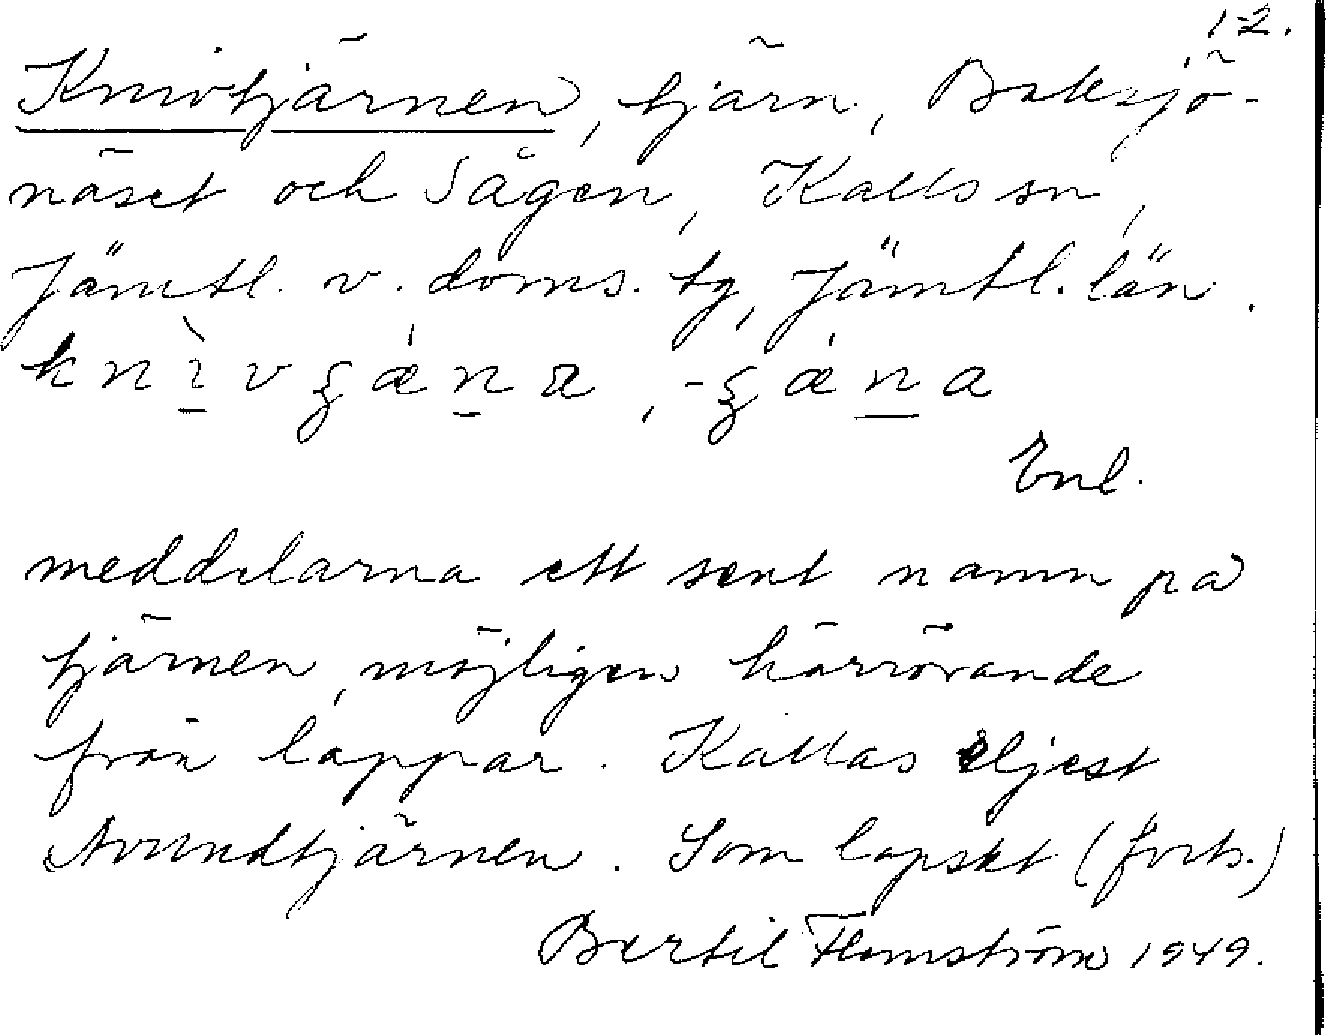 12.
Knivtjärnen, tjärn, Baksjö-
näset och Sågen, Kalls sn,
Jämtl. v. doms. tg, Jämtl. län.
Enl.
meddelarna ett sent namn på
tjärnen, möjligen härrörande
från lappar. Kallas eljest
Avundtjärnen. Som lapskt (forts.)
Bertil Flemström 1949.